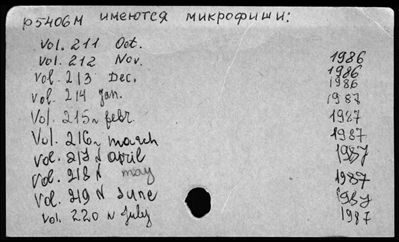 р5406м имеются микрофиши:
Vol. 211 Oct. 1986
vol. 212 Nov. 1986
vol. 213 Dec. 1986
vol. 214 Jan. 1987
Vol. 215 febr. 1987
Vol. 216 march 1987
vol. 217 april 1987
vol. 218 may 1987
vol. 219 June 1987
vol. 220 July 1987